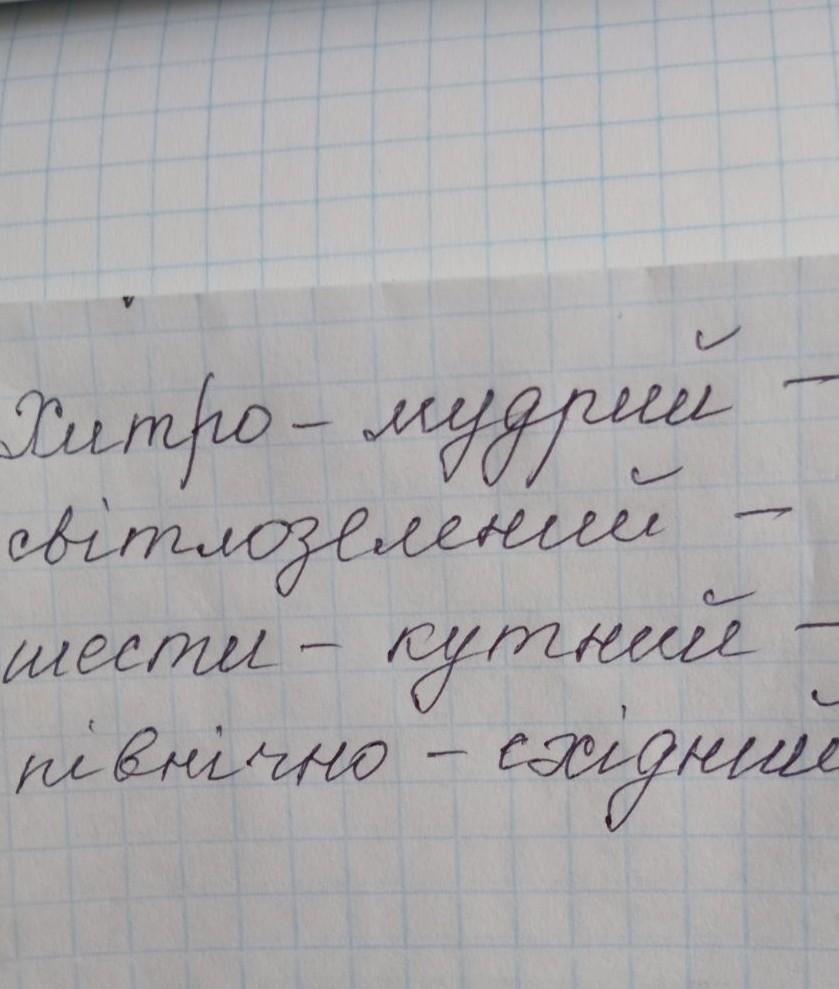 Хитро - мудрий -
світлозелений -
шести - кутний -
північно - східний